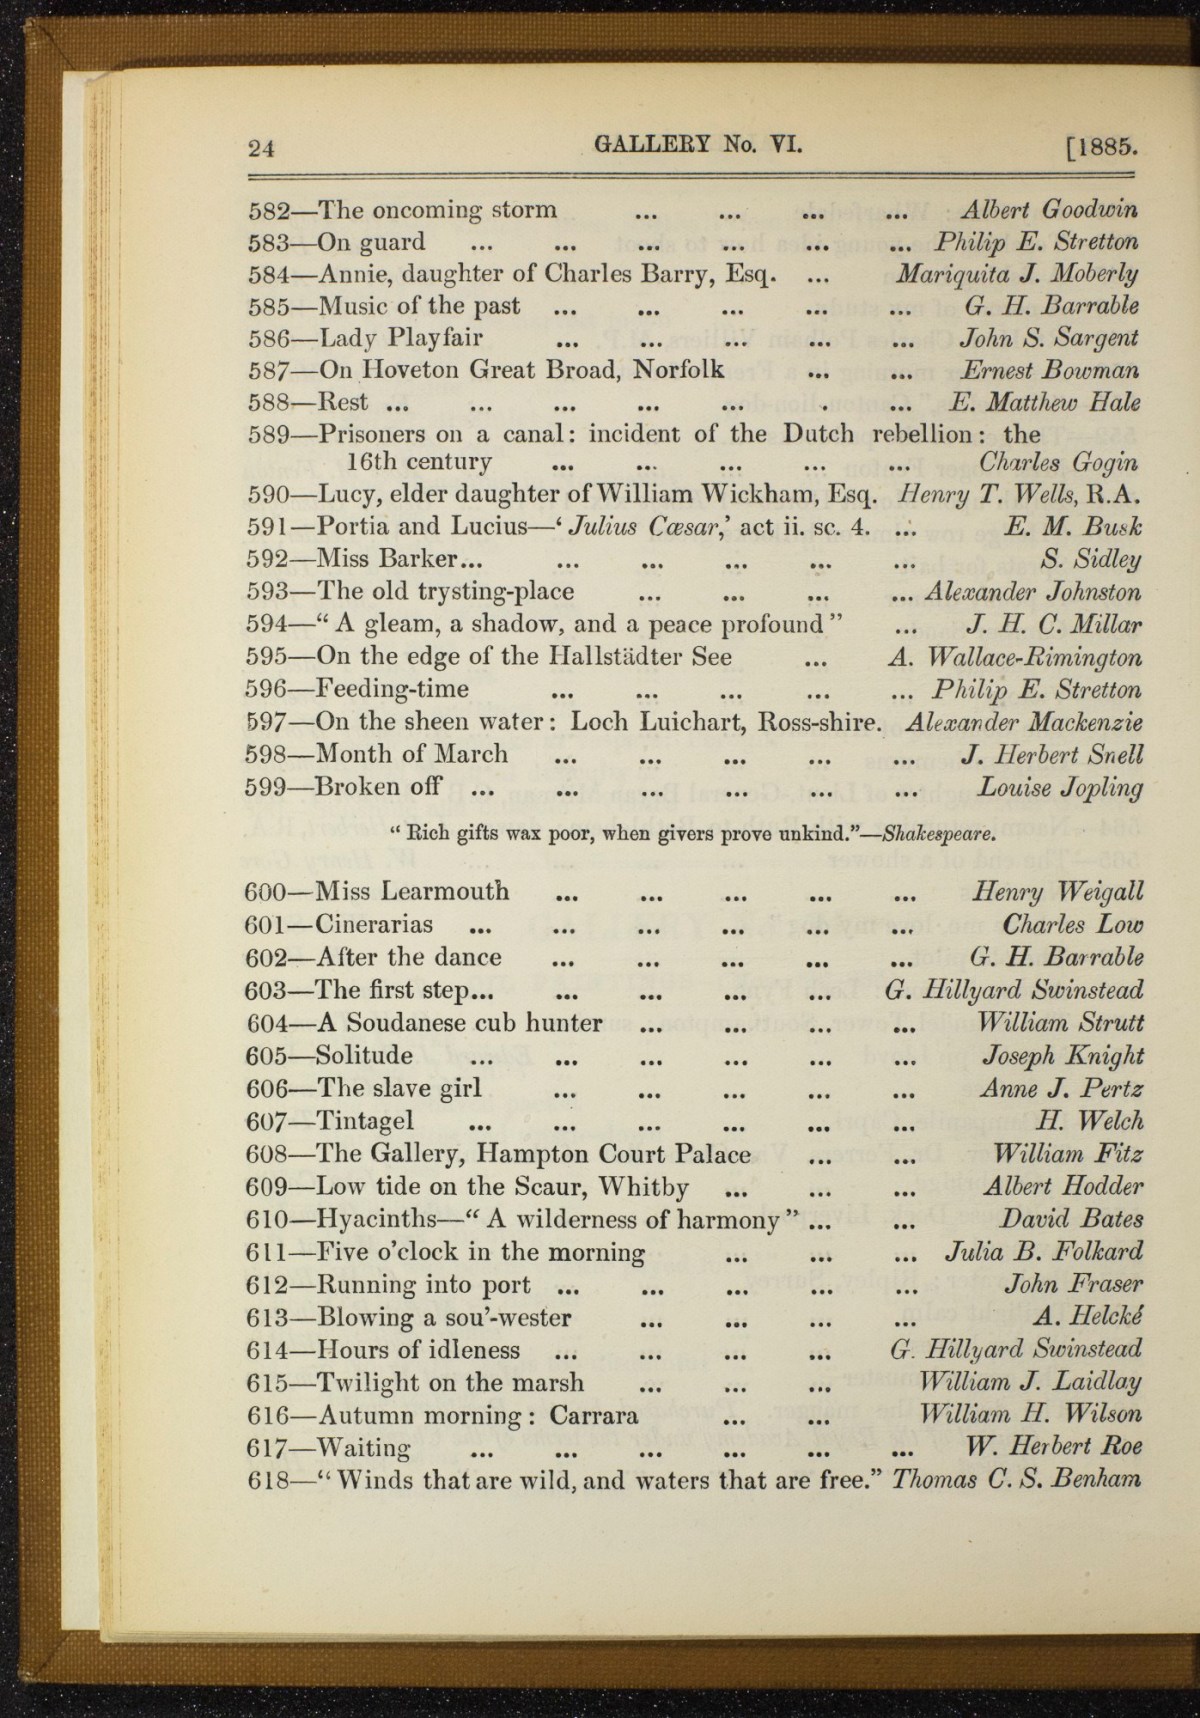 24 GALLERY No. VI. [1885.
582—The oncoming storm ... ... ... ... Albert Goodwin
583—On guard ... ... ... ... ... ... Philip E. Stretton
584—Annie, daughter of Charles Barry, Esq. ... Mariquita J. Moberly
585—Music of the past ... ... ... ... ... G. H. Barrable
586—Lady Playfair ... ... ... ... ... John S. Sargent
587—On Hoveton Great Broad, Norfolk ... ... Ernest Bowman
588—Rest ... ... ... ... ... . ... E. Matthew Hale
589—Prisoners on a canal: incident of the Dutch rebellion: the
16th century ... ... ... ... ... Charles Gogin
590—Lucy, elder daughter of William Wickham, Esq. Henry T. Wells, R.A.
591—Portia and Lucius—‘Julius Cæsar,’ act ii. sc. 4. ... E. M. Busk
592—Miss Barker... ... ... ... ... ... S. Sidley
593—The old trysting-place ... ... ... ... Alexander Johnston
594—“A gleam, a shadow, and a peace profound” ... J. H. C. Millar
595—On the edge of the Hallstädter See ... A. Wallace-Rimington
596—Feeding-time ... ... ... ... ... Philip E. Stretton
597—On the sheen water: Loch Luichart, Ross-shire. Alexander Mackenzie
598—Month of March ... ... ... ... ... J. Herbert Snell
599—Broken off ... ... ... ... ... ... Louise Jopling
“Rich gifts wax poor, when givers prove unkind.”—Shakespeare.
600—Miss Learmouth ... ... ... ... ... Henry Weigall
601—Cinerarias ... ... ... ... ... ... Charles Low
602—After the dance ... ... ... ... ... G. H. Barrable
603—The first step... ... ... ... ... G. Hillyard Swinstead
604—A Soudanese cub hunter ... ... ... ... William Strutt
605—Solitude ... ... ... ... ... ... Joseph Knight
606—The slave girl ... ... ... ... ... Anne J. Pertz
607—Tintagel ... ... ... ... ... ... H. Welch
608—The Gallery, Hampton Court Palace ... ... William Fitz
609—Low tide on the Scaur, Whitby ... ... ... Albert Hodder
610—Hyacinths—“A wilderness of harmony” ... ... David Bates
611—Five o’clock in the morning ... ... ... Julia B. Folkard
612—Running into port ... ... ... ... ... John Fraser
613—Blowing a sou’-wester ... ... ... ... A. Helcké
614—Hours of idleness ... ... ... ... G. Hillyard Swinstead
615—Twilight on the marsh ... ... ... William J. Laidlay
616—Autumn morning: Carrara ... ... William H. Wilson
617—Waiting ... ... ... ... ... ... W. Herbert Roe
618—“Winds that are wild, and waters that are free.” Thomas C. S. Benham